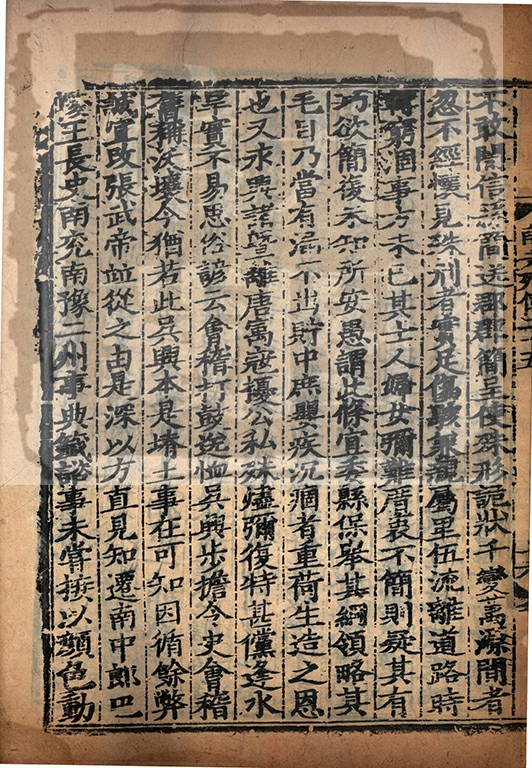 不敢闇信縣簡送郡郡簡呈使殊形詭狀千變萬源聞者
忽不經懷見殊刑者實足傷駭兼親屬里伍流離道路時
轉窮涸事方未已其士人婦女彌難厝衷不簡則疑其有
巧欲簡復未知所安愚謂此條宜委縣保舉其綱領略其
毛目乃當有漏不出貯中庶嬰疾沉痼者重荷生造之恩
也又永興諸曁離唐寓寇擾公私殊燼彌復特甚儻逢水
旱實不易思俗諺云會稽打鼓送恤吳興步擔令史會稽
舊稱沃壤今猶若此吳興本是塉土事在可知因循餘弊
誠宜改張武帝並從之由是深以方直見知遷南中郎巴
陵王長史南兖南豫二州事典籤諮事未嘗接以顏色動